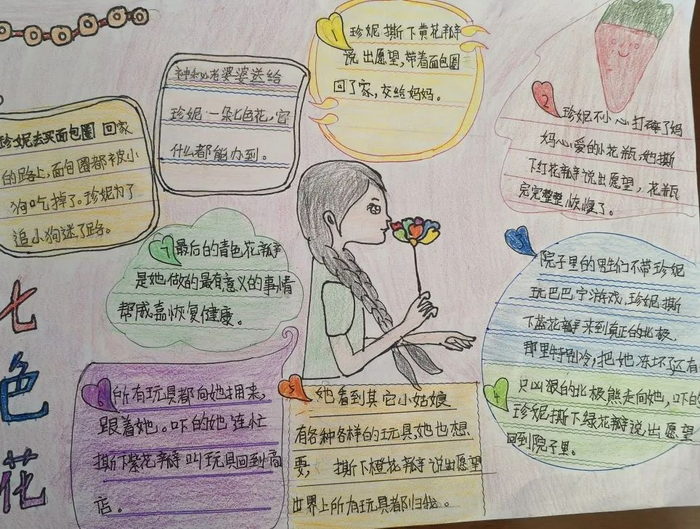 七色花
珍妮去买面包圈 回家
的路上,面包圈都被小
狗吃掉了。珍妮为了
追小狗迷了路。
神秘老婆婆送给
珍妮一朵七色花,它
什么都能力到。
1 珍妮撕下黄花瓣
说出愿望,带着面包圈
回了家,交给妈妈。
2 珍妮不小心打碎了妈
妈心爱的小花瓶,她撕
下红花瓣说出愿望,花瓶
完完整整恢复了。
院子里的男生们不带珍妮
玩巴巴宁游戏,珍妮撕
下蓝花瓣来到真正的北极.
那里特别冷,把她冻坏了还有
4 只凶狠的北极熊走向她,吓的
珍妮撕下绿花瓣说出愿望
回到院子里。
5 她看到其它小姑娘
有各种各样的玩具,她也想
要, 撕下橙花瓣说出愿望
世界上所有玩具都归我。
6 所有玩具都向她拥来,
跟着她。吓的她连忙
撕下紫花瓣叫玩具回到商
店。
7 最后的青色花瓣
是她做的最有意义的事情
帮威嘉恢复健康。